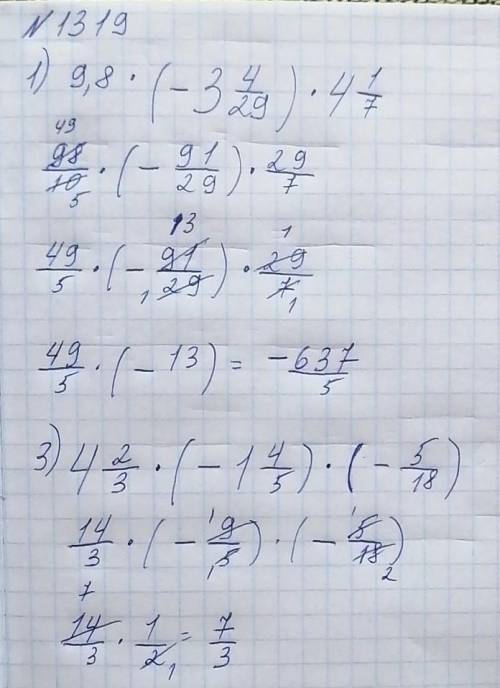 №1319
1) 9,8 · (-3 4/29) · 4 1/7
49
98/10 · (- 91/29) · 29/7
5
13 1
49/5 · (- 91/29) · 29/7
1 1
49/5 · (- 13) = -637/5
3) 4 2/3 · (-1 4/5) · (- 5/18)
1 1
14/3 · (- 9/5) · (- 5/18)
1 2
7
14/3 · 1/2 = 7/3
1